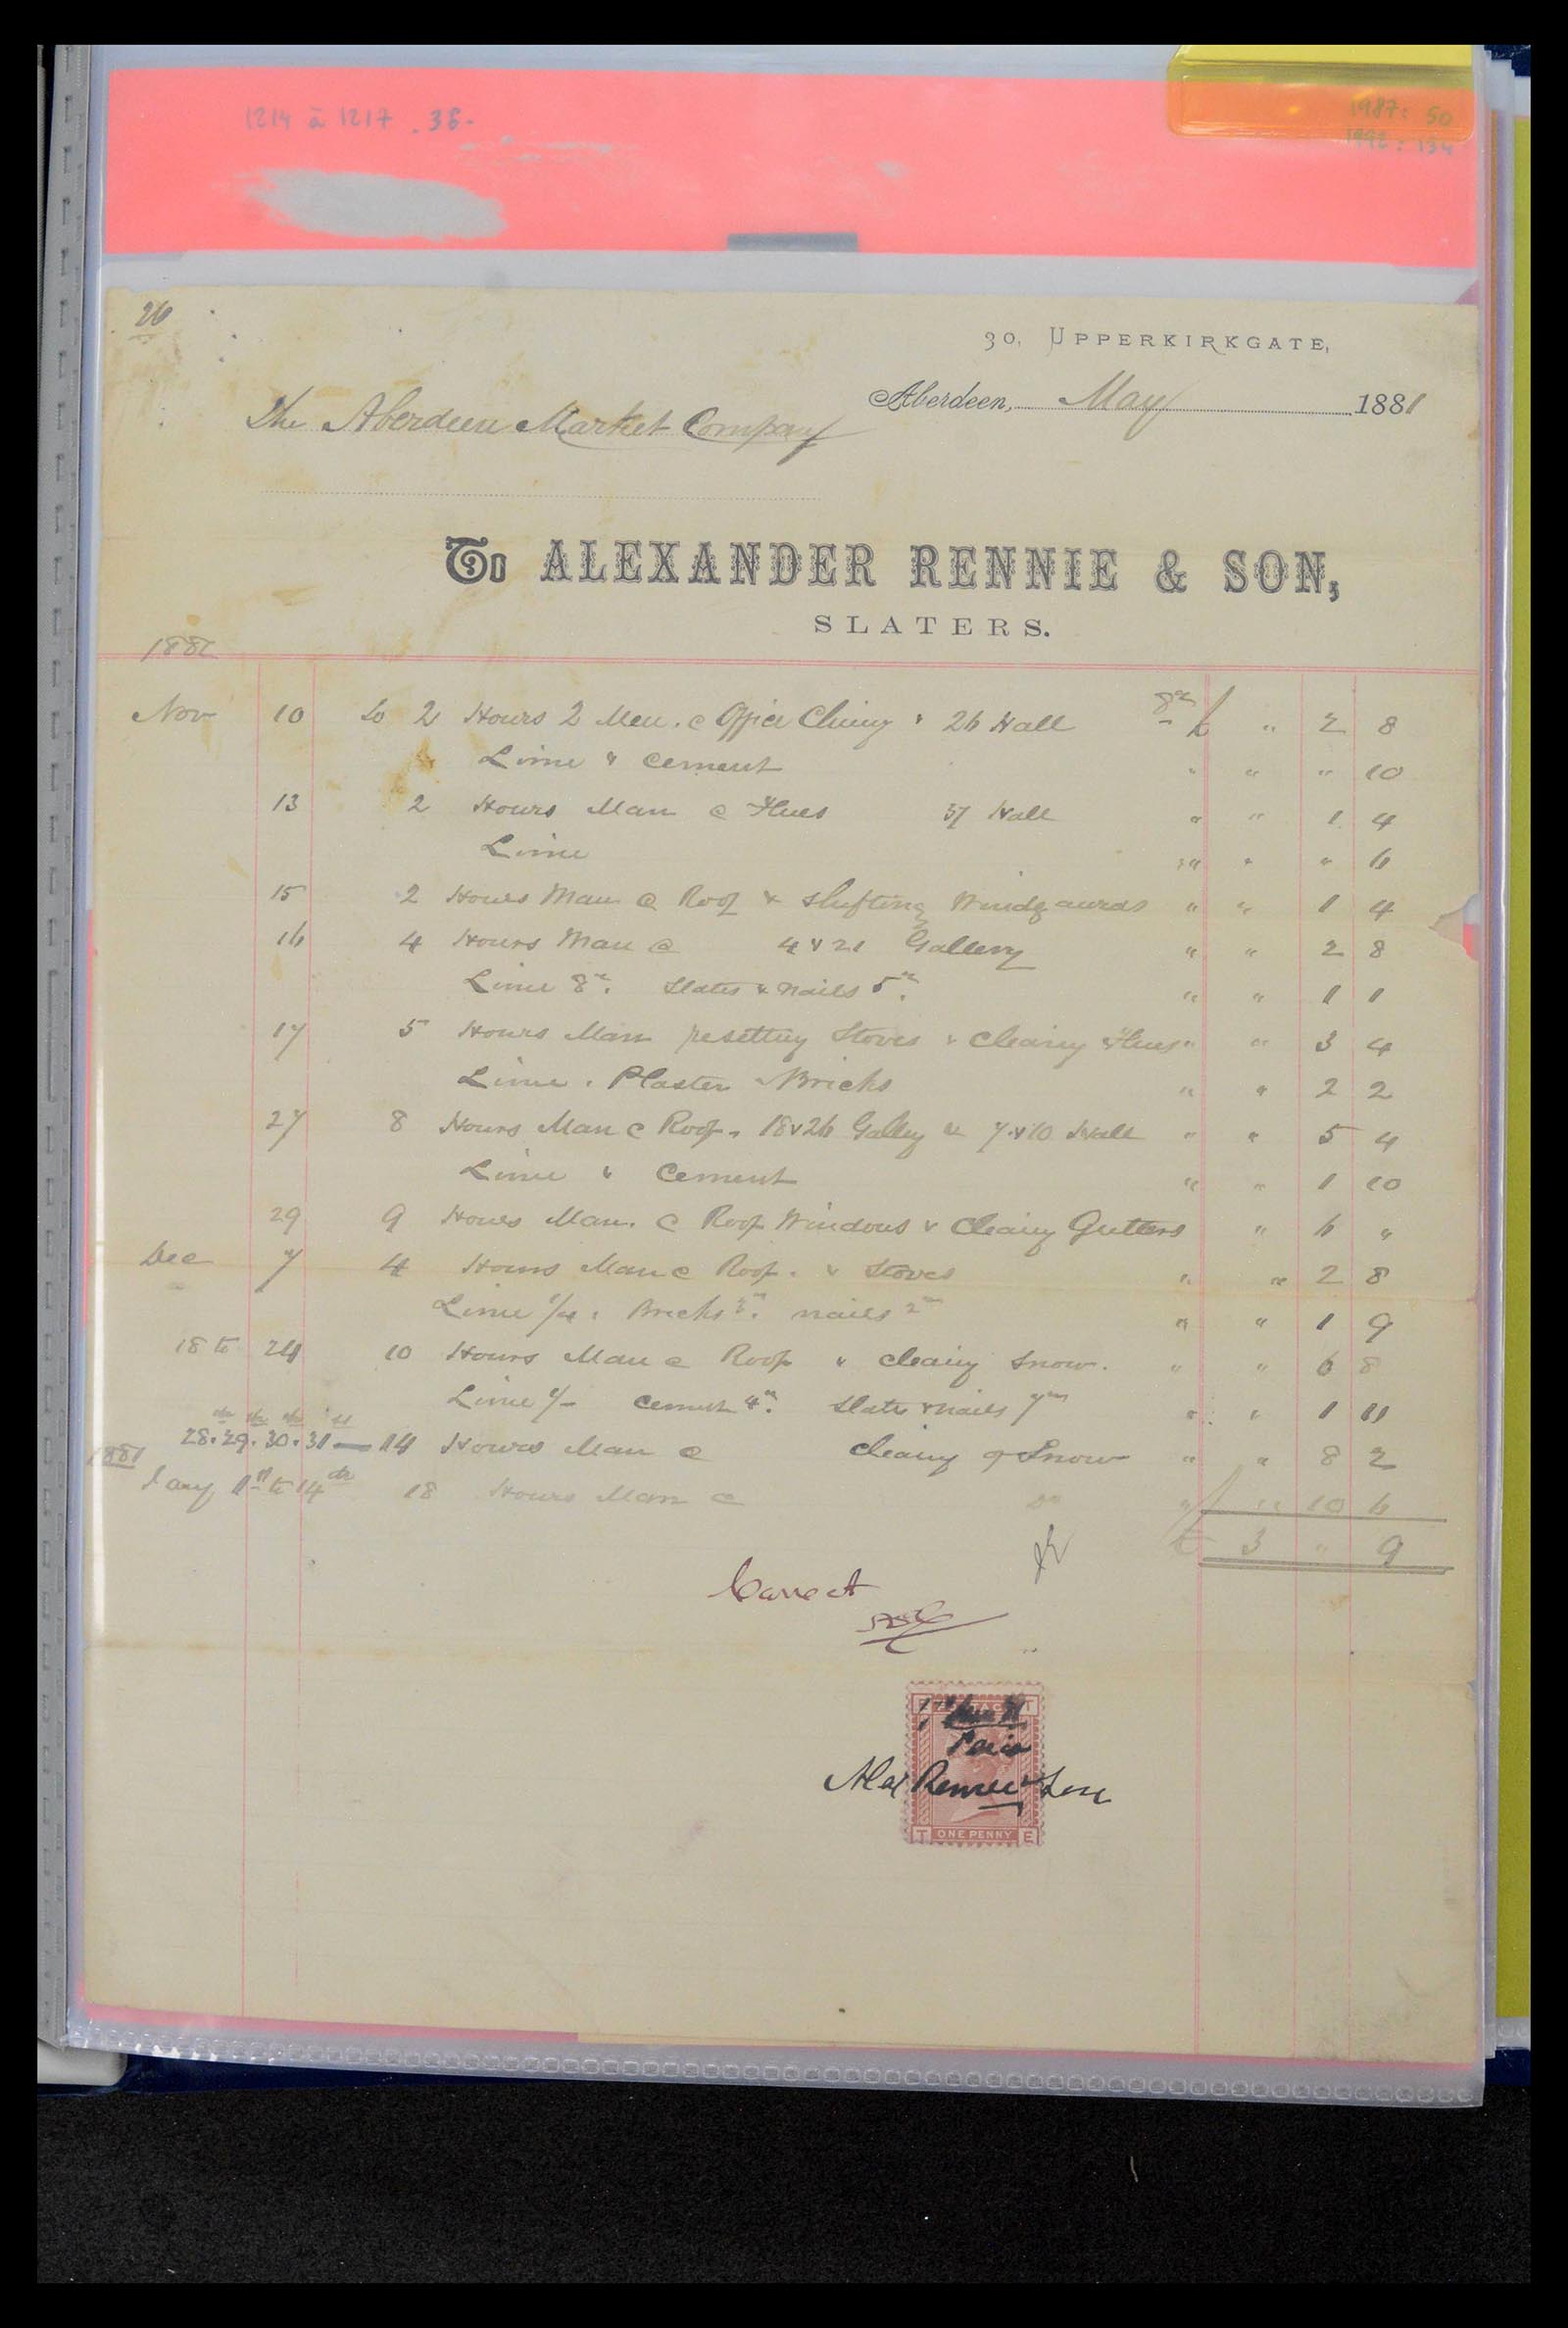 1214 à 1217 . 38-
1987: 50
1992: 134
26
30, UPPERKIRKGATE,
Aberdeen, May 1881
The Aberdeen Market Company
To ALEXANDER RENNIE & SON,
SLATERS.
Nov 10 To 2 Hours 2 Men @ Office Chimy & 26 Hall 8d £ " 2 8
Lime & Cement " " " 10
13 2 Hours Man @ Flues 37 Hall " " 1 4
Lime " " " 6
15 2 Hours Man @ Roof & shifting Windgaurds " " 1 4
16 4 Hours Man @ 4 & 21 Gallery " " 2 8
Lime 8d. Slates & Nails 5d. " " 1 1
17 5 Hours Man resetting Stoves & Cleaing Flues " " 3 4
Lime, Plaster & Bricks " " 2 2
27 8 Hours Man @ Roof, 18 & 26 Galley & 7 & 10 Hall " " 5 4
Lime & Cement " " 1 10
29 9 Hours Man @ Roof Windows & Cleaing Gutters " 6 "
Dec 7 4 Hours Man @ Roof & Stoves " " 2 8
Lime 1/4. Bricks 3d. nails 2d " " 1 9
18 to 24 10 Hours Man @ Roof & cleaing Snow. " " 6 8
Lime 1/- Cement 4d. Slate & Nails 7d " " 1 11
28th. 29th. 30th. 31st — 14 Hours Man @ cleaing of Snow " " 8 2
1881
Jany 1st to 14th 18 Hours Man @ Do " " 10 6
£ 3 " 9
Correct
POSTAGE
Paid
Alex Rennie & Son
T ONE PENNY E